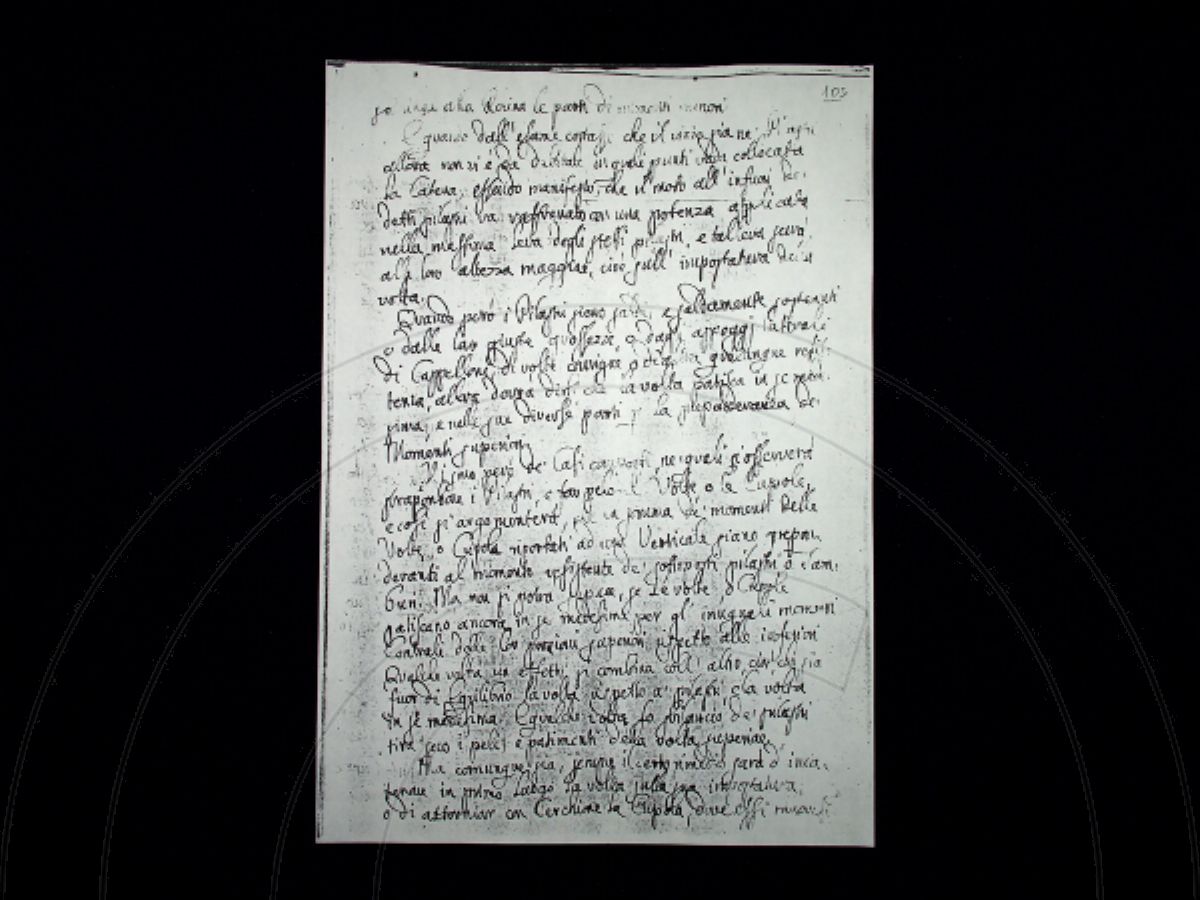 105
alla rovina le parti di momenti minori
E quando dall'esame costasse che il vizio sia ne' Pilastri
allora non vi è da dubitare in quali punti vada collocata
la Catena, essendo manifesto, che il moto all'infuori de'
detti pilastri va raffrenato con una potenza applicata
nella massima leva degli stessi pilastri, e tal leva sarà
alla loro altezza maggiore, cioè sull'impostatura della
volta.
Quando però i Pilastri siano saldi, e saldamente sostenuti
o dalle loro giuste grossezze, o dagli appoggi laterali
di Cappellone, di volte contigue, o di qualunque resis-
tenza, allora dovrà dirsi che la volta patisca in se mede-
sima, e nelle sue diverse parti la preponderanza de'
Momenti superiori.
Vi sono però de' Casi composti, ne' quali si osserverà
strapiombare i Pilastri, e far peli le Volte, o le Cupole,
e così si argomenterà, che la somma de' momenti delle
Volte, o Cupola riportati ad una Verticale siano prepon-
deranti al momento resistente de' sottoposti pilastri o Tam-
buri. Ma non si potrà sapere, se le volte, o Cupole
patiscano ancora in se medesime per gl'inuguali momenti
Centrali delle loro porzioni superiori rispetto alle inferiori
Qualche volta un effetto si combina coll'altro, cioè che sia
fuor di Equilibrio la volta rispetto a' pilastri e la volta
in se medesima. E qualche volta lo sbilancio de' pilastri
tira seco i peli, e patimenti della volta superiore.
Ma comunque sia, sempre il certo rimedio sarà d'inca-
tenare in primo luogo la volta sulla sua impostatura,
o di attorniar con Cerchione la Cupola, dove essi